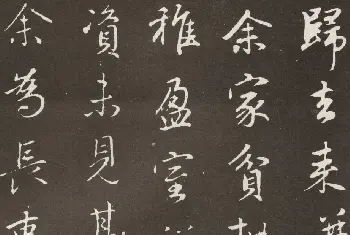 歸去来并
余家貧
稚盈室
資未見其
余為長吏